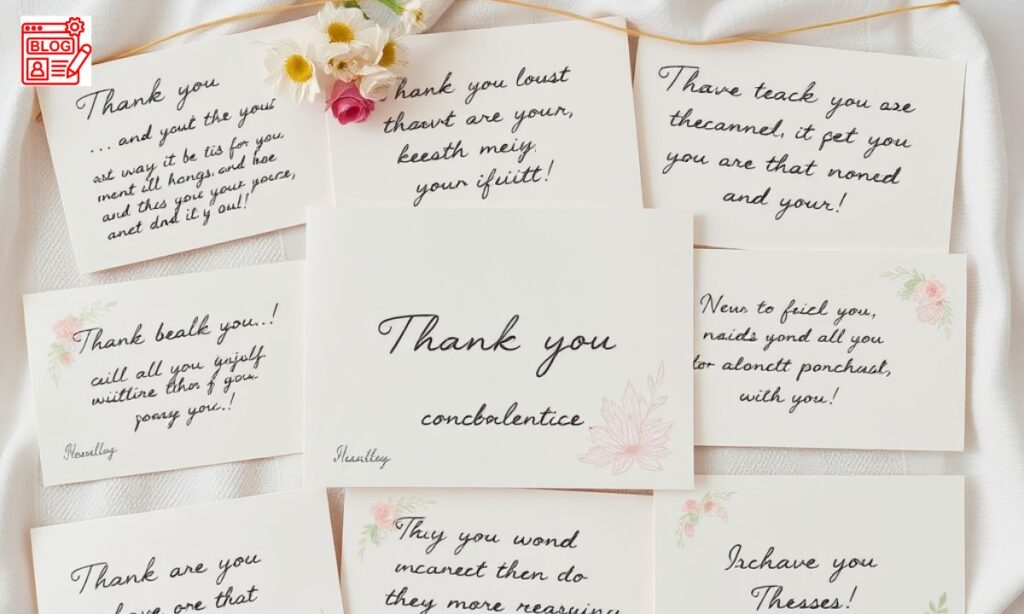 BLOG
Thank you
... and yout the yout
ast way it be tis for you.
ment ill hongs, and hoe
and this you your youre,
anet dnd it y oul!
hank you loust
thaevt are your,
keesth meiy.
your ifuitt!
Thave teack you ase
thecannel, it get you
you are that noned
and your!
Thank bealk you..!
caill all you
wiittire thos f you.
you..!
Thank you
concbalentice
to fricl you,
naids yond all you
alonctt ponchual,
with you!
Thank are you
have ore that
They you wond
mcanect then do
they more
Ixchave you
Thesses!